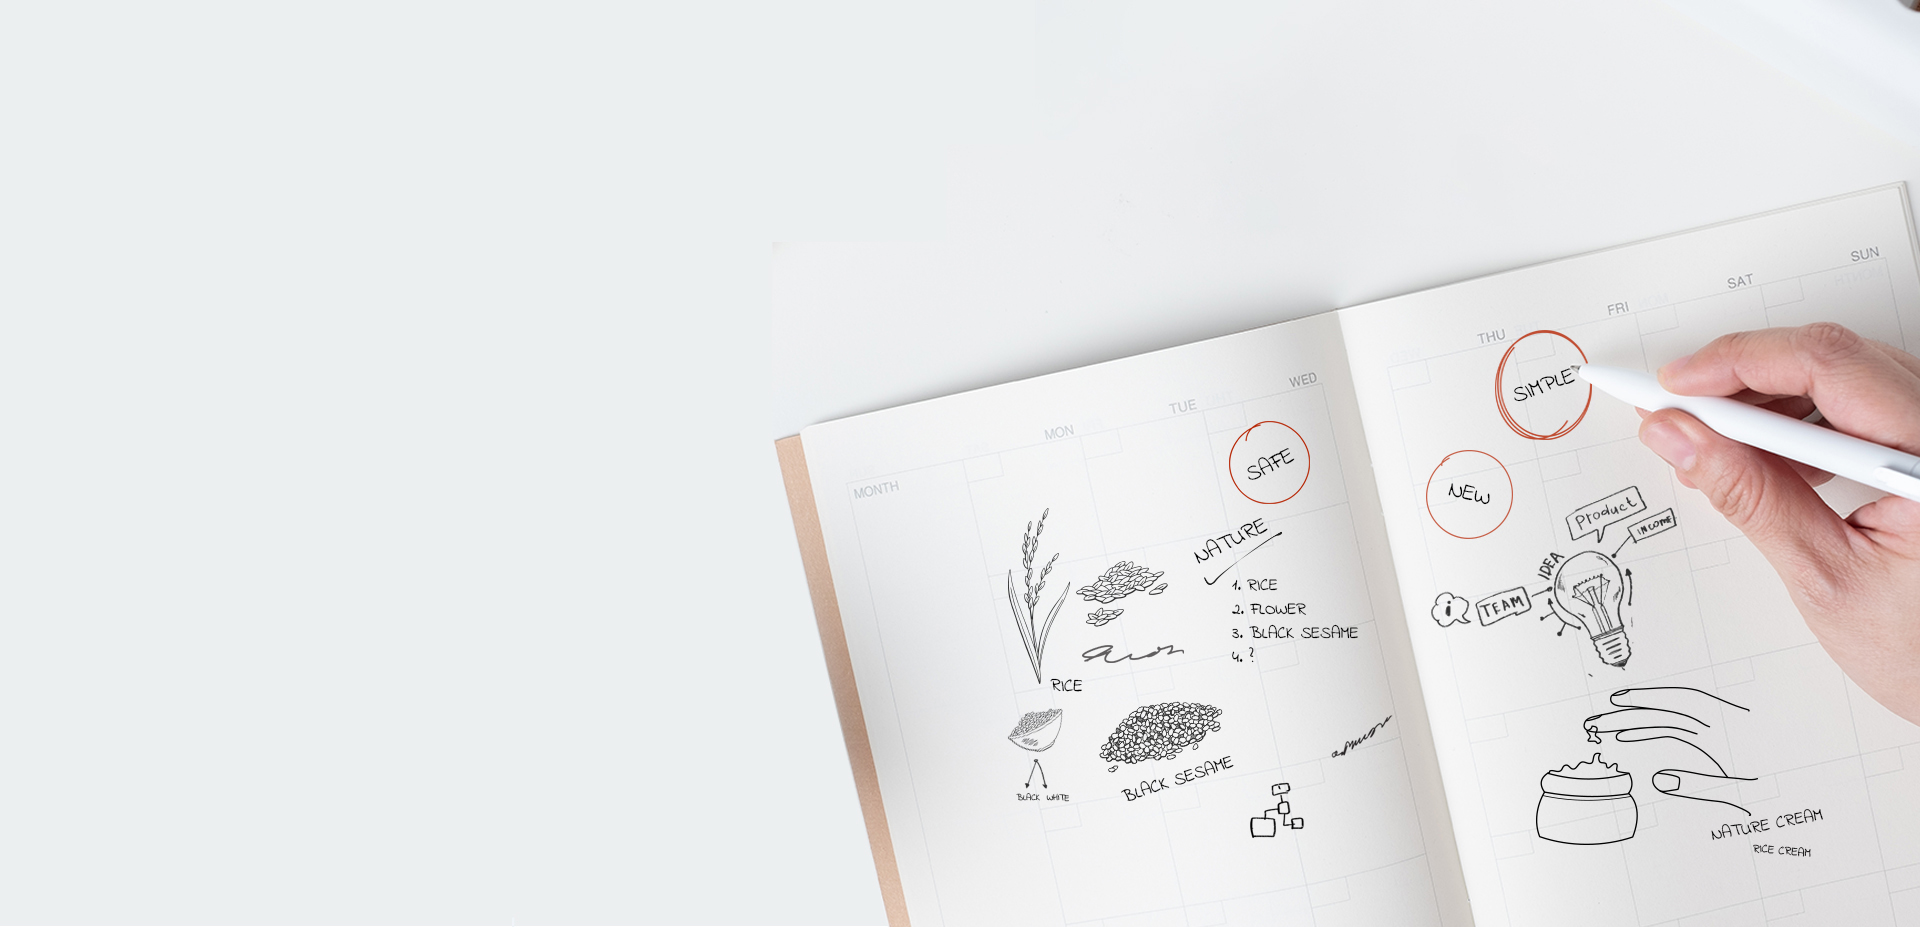 MONTH
MON
TUE
WED
SAFE
NATURE
1. RICE
2. FLOWER
3. BLACK SESAME
4. ?
RICE
BLACK WHITE
BLACK SESAME
THU
FRI
SAT
SUN
SIMPLE
NEW
Product
INCOME
IDEA
i
TEAM
NATURE CREAM
RICE CREAM